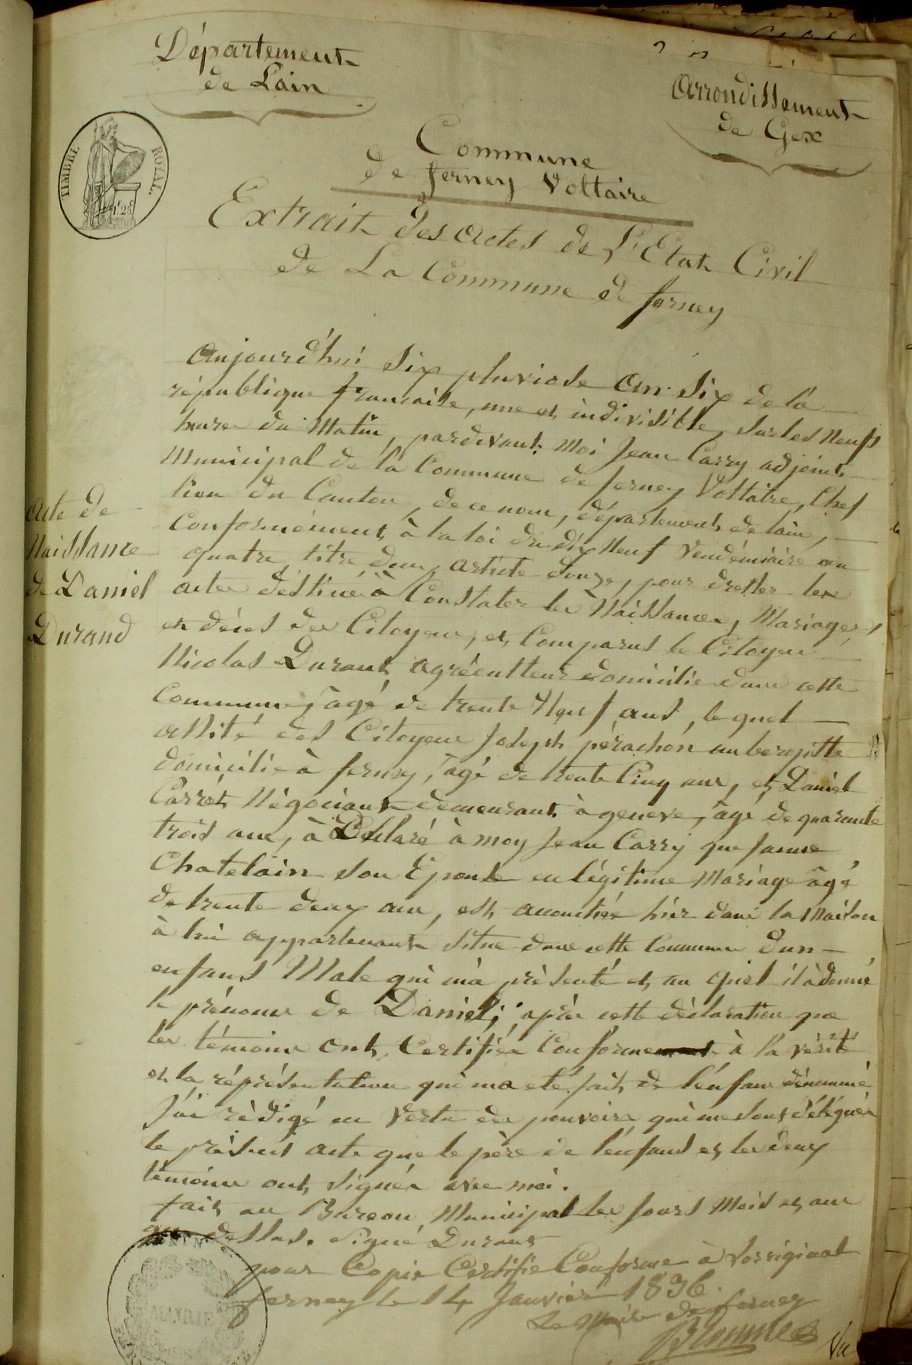 Département
de Lain
Arrondissement
de Gex
TIMBRE ROYAL
Commune
de ferney Voltaire
Extrait des actes de L'Etat Civil
de La Commune de ferney
Acte de
Naissance
de Daniel
Durand
aujourd'hui six pluviose an six de la
république francaise, une et indivisible, sur les Neuf
heures du Matin, pardevant Moi Jean Carry adjoint
Municipal de la Commune de ferney Voltaire, Chef
lieu du Canton, de ce nom, département de lain,
Conformément, à la loi du dix Neuf Vendémiaire an
quatre, titre deux, article douze, pour dresser les
actes destinés à Constater les Naissances, Mariages
et décès des Citoyens, est Comparus le Citoyen
Nicolas Durant, agréculteur domicilié dans cette
Commune, agé de trente Neuf ans, lequel
assité des Citoyens Joseph pérachon
domicilié à ferney, agé de trente Cinq ans, et Daniel
Carret Négociant demeurant à geneve, agé de quarante
trois ans, à Déclaré à moy Jean Carry que Janne
Chatelain son Epouse en légitime Mariage agé
de trente deux ans, est accouchée hier dans la Maison
à lui appartenant situé dans cette Commune d'un
enfant Male qui m'à présenté et au quel il à donné
le prénom de Daniel; après cette déclaration que
les témoins ont Certifiés Conforme à la vérité
et la réprésentation qui ma eté fait de l'enfant dénommé
J'ai rédigé en vertu des pouvoirs qui me sont délégués
le présent acte que le père de l'enfant et les deux
témoins ont signés avec moi.
fait au Bureau Municipal les Jours Mois et an
que dessus. signé Durant
pour Copie Certifié Conforme à lorriginal
ferney le 14 Janvier 1836
Le Maire de ferney
MAIRIE